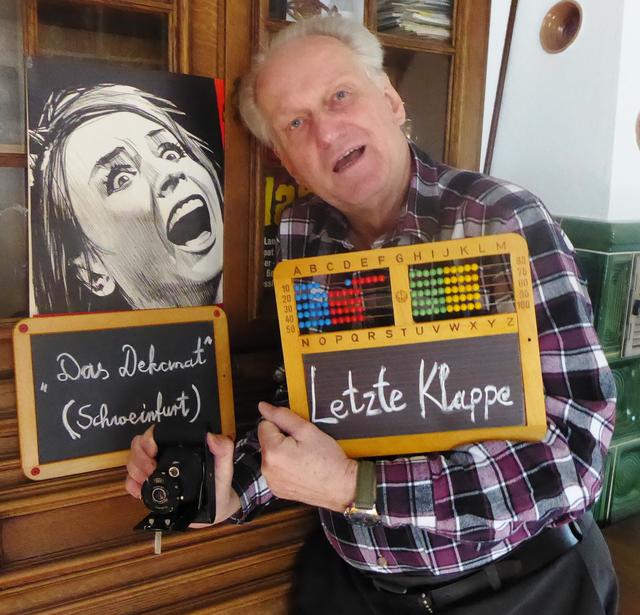 "Das Dekanat"
(Schweinfurt)
A B C D E F G H I J K L M
10
20
30
40
50
60
70
80
N O P Q R S T U V W X Y Z
Letzte Klappe